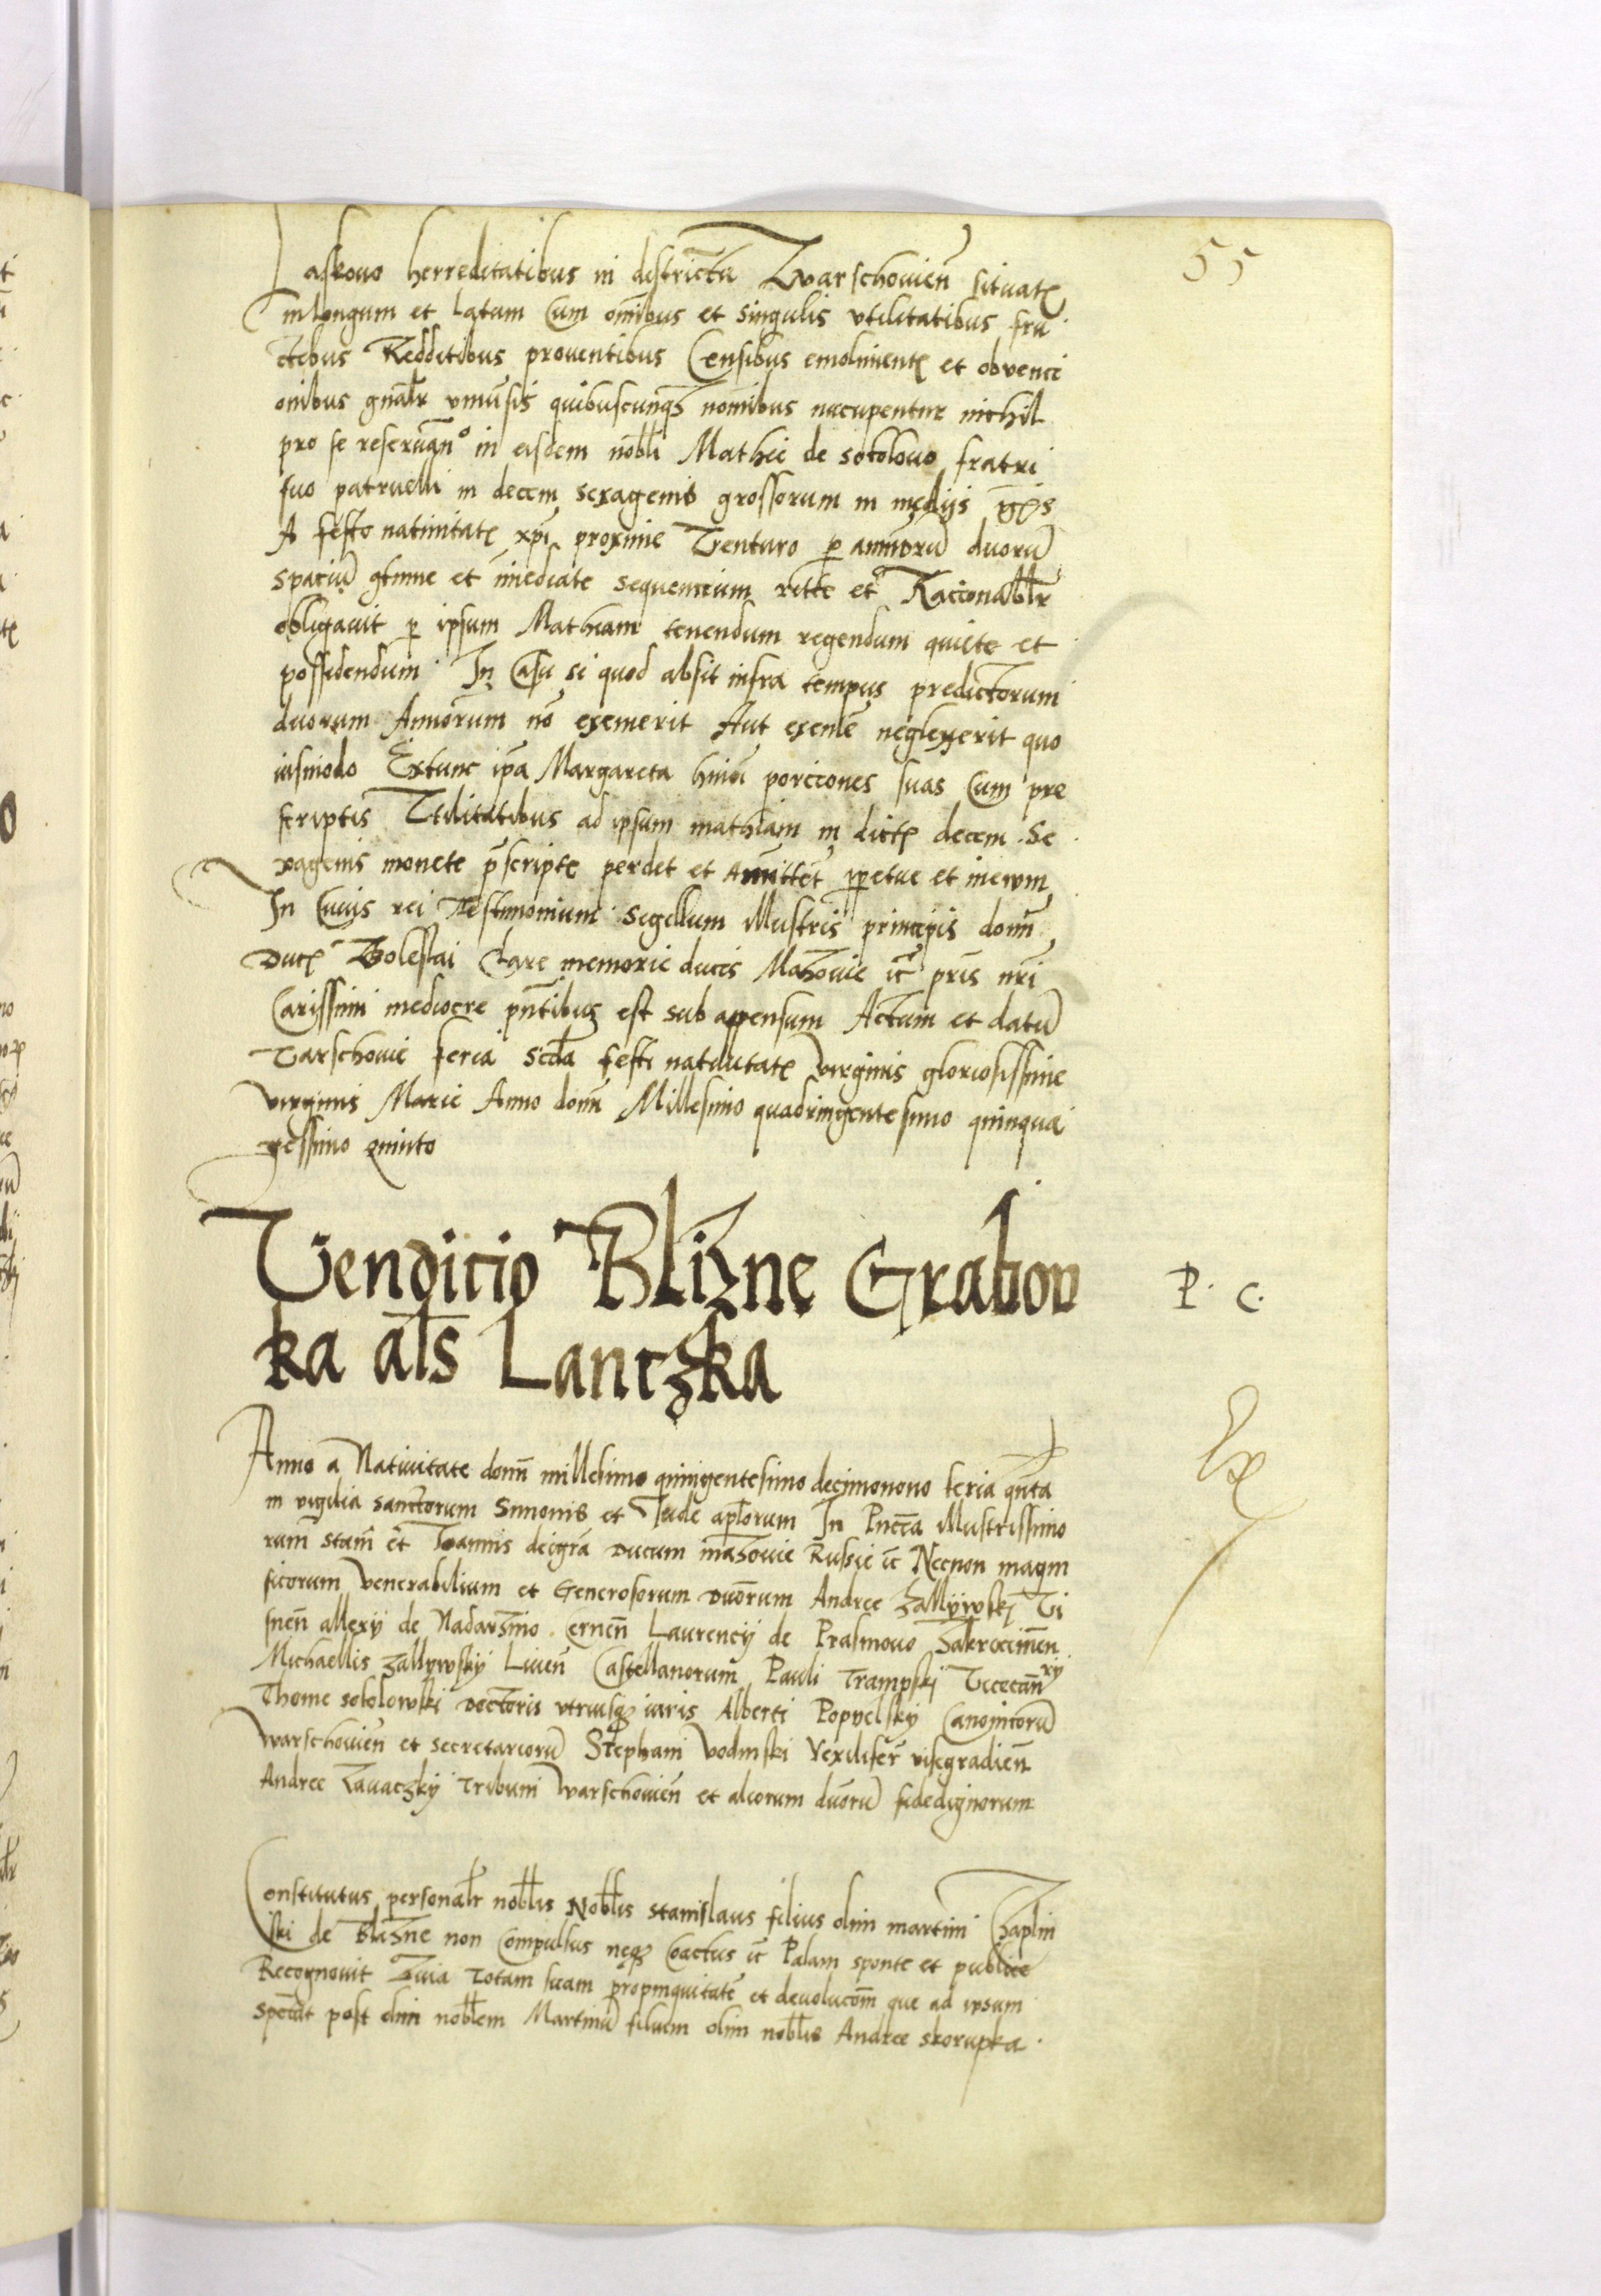 55
Laskouo herreditatibus in districtu Warschouien̄ situatꝭ
in longum et latum Cum om̄ibus et singulis vtilitatibus fru
ctibus Redditibus prouentibus Censibus emolimentꝭ et obuenci
onibus gn̄alr vniu͞sis quibuscunqꝫ nom̄ibus nu͞cupentur nichil
pro se reseruan̄º in eisdem nobli Mathie de sokolouo fratri
suo patrueli in decem sexagenis grossorum in medijs
A festo natiuitatꝭ xp̄i proxime Venturo ꝑ annorū duorū
spaciū et īmediate sequencium ritte et Racionablr
obligauit ꝑ ipsum Mathiam tenendum regendum quiete et
possidendum In Casu si quod absit infra tempus predictorum
duorum Annorum nō exemerit Aut exem̄e neglexerit quo
uismodo Extunc ip̄a Margareta hm̄oi porciones suas Cum pre
scriptis Vtilitatibus ad ipsum mathiam in dictꝭ decem Se
xagenis monete p̄scripte perdet et Amittet ꝑpetue et in ewm
In Cuius rei Testimonium Sigillum Illustris principis domī
Ducꝭ Boleslai Clare memorie ducis Mazouie ic̄ pr̄is nr̄i
Carissimi mediocre pn̄tibus est sub appensum Actum et datū
Varschouie feria Scd̄a festi natiuitatꝭ virginis gloriosissime
virginis Marie Anno domī Millesimo quadringentesimo quinqua
gessimo quinto
Vendicio Blizne Grabow
ka al̄s Lanczka
P. C.
Anno a Natiuitate domī millesimo quingentesimo decimonono feria qn̄ta
in vigilia sanctorum Simonis et Iude apl̄orum In Pn̄cia Illustrissimo
rum Stan̄ et Ioannis dei gr̄a Ducum mazouie Russie ic̄ Necnon magni
ficorum Venerabilium et Generosorum Dn̄orum Andree Zallijwskj Vi
snen̄ allexy de Nadarzino Cernen̄ Laurencij de Prasmouo Zakroczimen̄
Michaellis Zallywskij Liuen̄ Castellanorum Pauli Trampskj Vicecan̄rij
Thome sokolowski Doctoris vtriusqꝫ iuris Alberti Popyelskÿ Canonicorū
Warschouien̄ et secretariorū Stephani Vodinski Vexilifer̄ visegradien̄
Andree Zauaczkÿ Tribuni Warschouien̄ et aliorum dn̄orū fidedignorum
Constitutus personalr noblis Noblis Stanislaus filius olim martini Chaplin
ski de Blizne non Compulsus neqꝫ Coactus ic̄ Palam sponte et publice
Recognouit Quia Totam suam propinquitatē et deuolucōm que ad ipsum
spectat post olim noblem Martinū filium olim noblis Andree skorupka